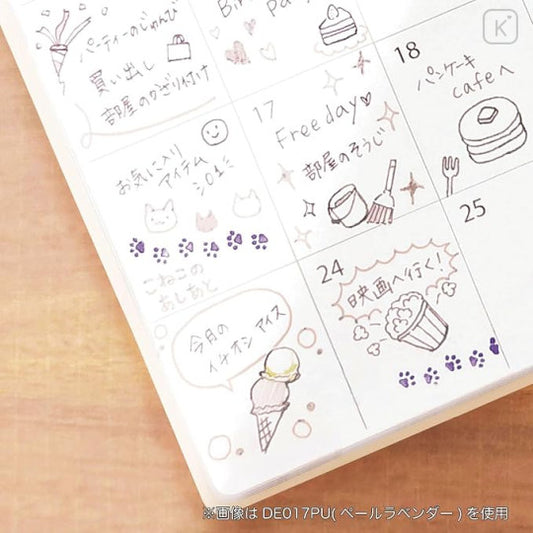 パーティーのじゅんび
買い出し
部屋のかざり付け
K
17
Free day
部屋のそうじ
18
パンケーキ
cafeへ
お気に入り
アイテム
こねこの
あしあと
24
映画へ行く!
25
今月の
イチオシ アイス
※画像は DE017PU( ペールラベンダー ) を使用